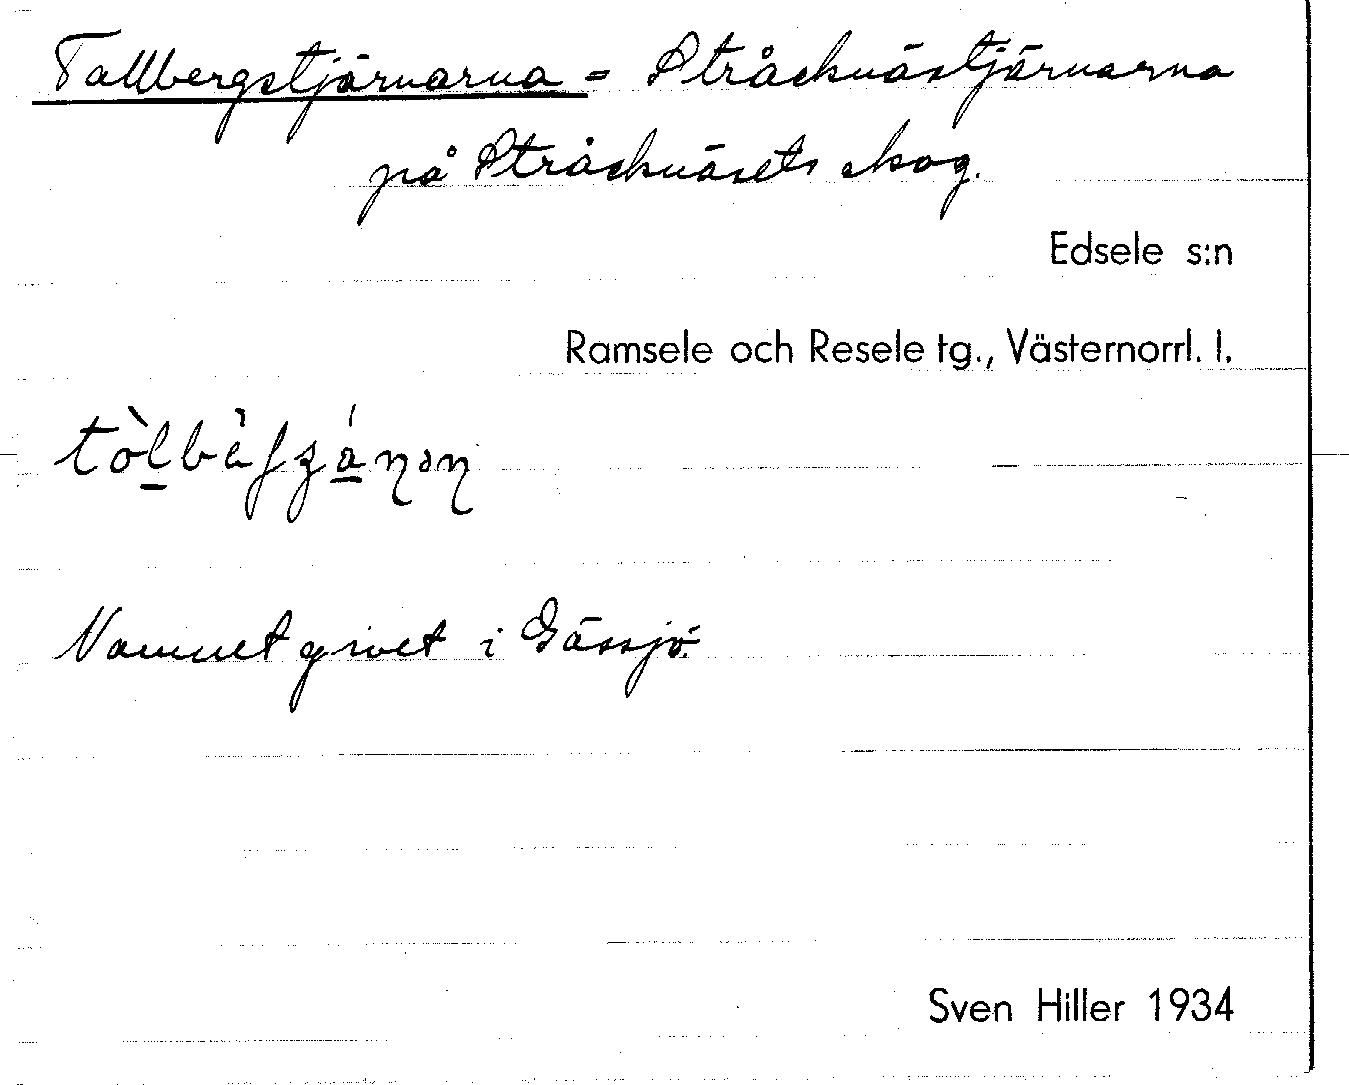 Tallbergstjärnarna = Stråcknästjärnarna
på Stråcknäsets skog.
Edsele s:n
Ramsele och Resele tg., Västernorrl. l.
Namnet givet i Gåssjö.
Sven Hiller 1934